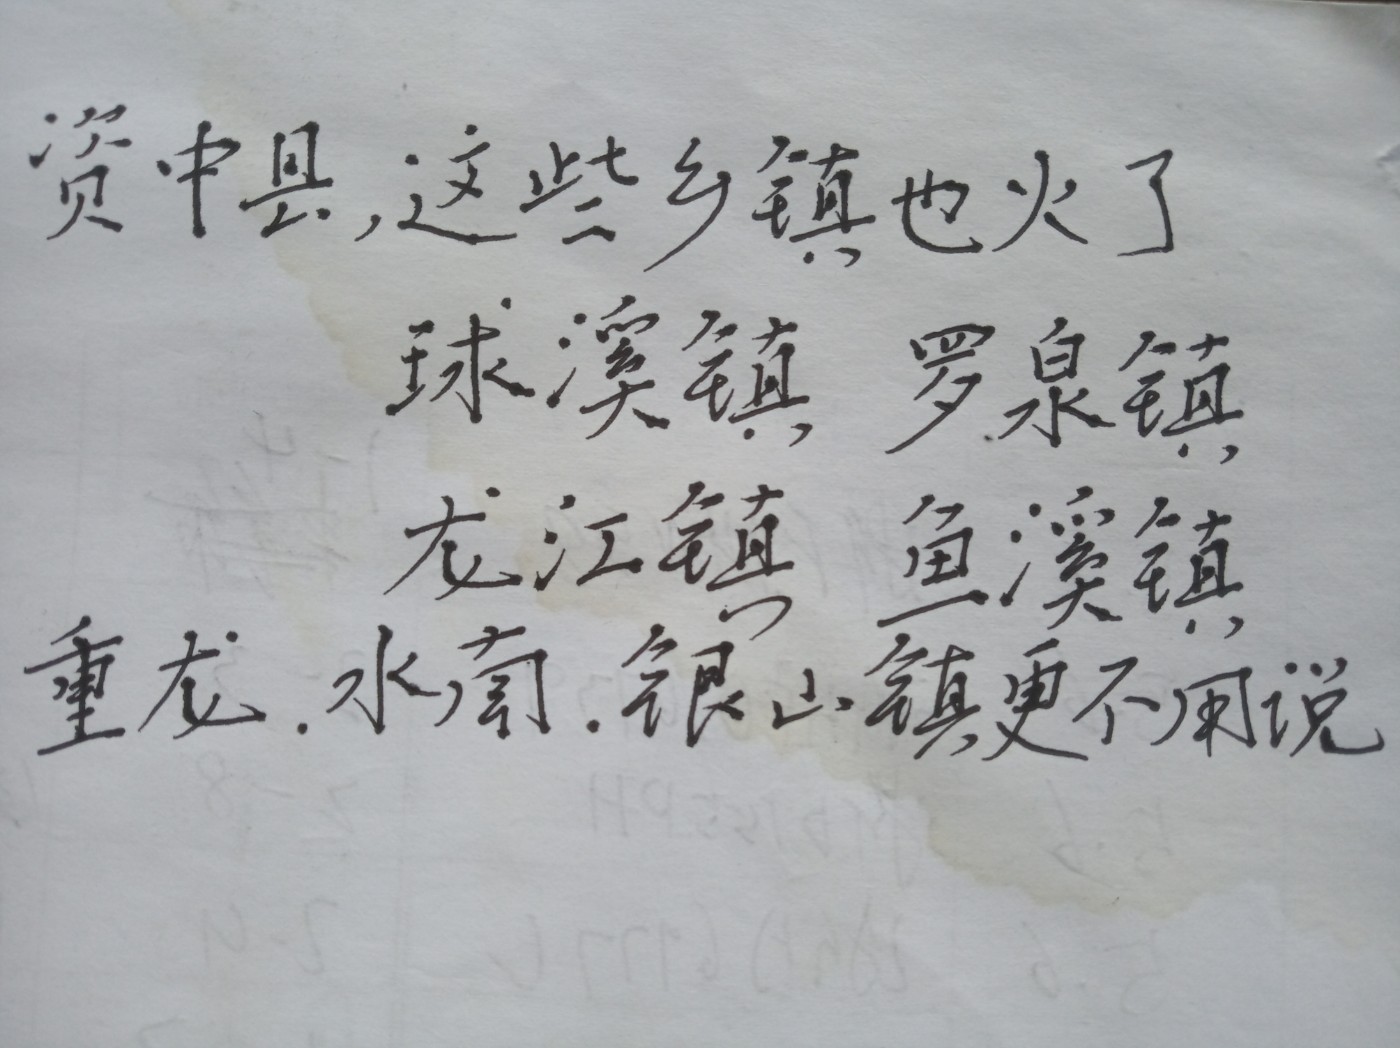 资中县,这些乡镇也火了
球溪镇 罗泉镇
龙江镇 鱼溪镇
重龙.水南.银山镇更不用说